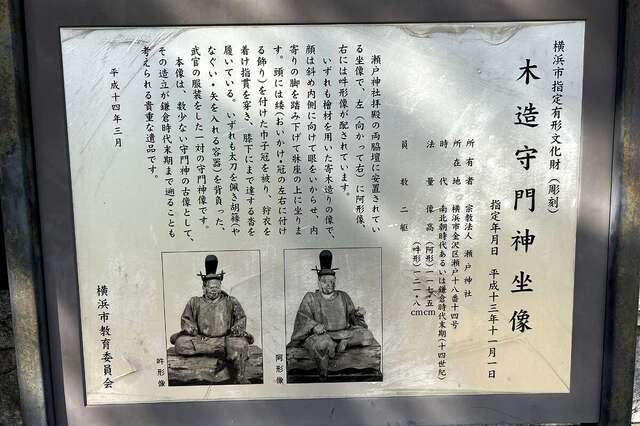 横浜市指定有形文化財（彫刻）
木造守門神坐像
指定年月日　平成十三年十一月一日
所有者　宗教法人　瀬戸神社
所在地　横浜市金沢区瀬戸十八番十四号
時代　南北朝時代あるいは鎌倉時代末期（十四世紀）
法量　像高（阿形）一一七・五cm
（吽形）一二一・八cm
員数　二躯
瀬戸神社拝殿の両脇壇に安置されてい
る坐像で、左（向かって右）に阿形像、
右には吽形像が配されています。
いずれも檜材を用いた寄木造りの像で、
顔は斜め内側に向けて眼をいからせ、内
寄りの脚を踏み下げて牀座の上に坐りま
す。頭には緌（おいかけ・冠の左右に付け
る飾り）を付けた巾子冠を被り、狩衣を
着け指貫を穿き、膝下にまで達する沓を
履いている。いずれも太刀を佩き胡籙（や
なぐい・矢を入れる容器）を背負った、
武官の服装をした一対の守門神像です。
本像は、数少ない守門神の古像として、
その造立が鎌倉時代末期まで遡ることも
考えられる貴重な遺品です。
平成十四年三月
横浜市教育委員会
阿形像
吽形像